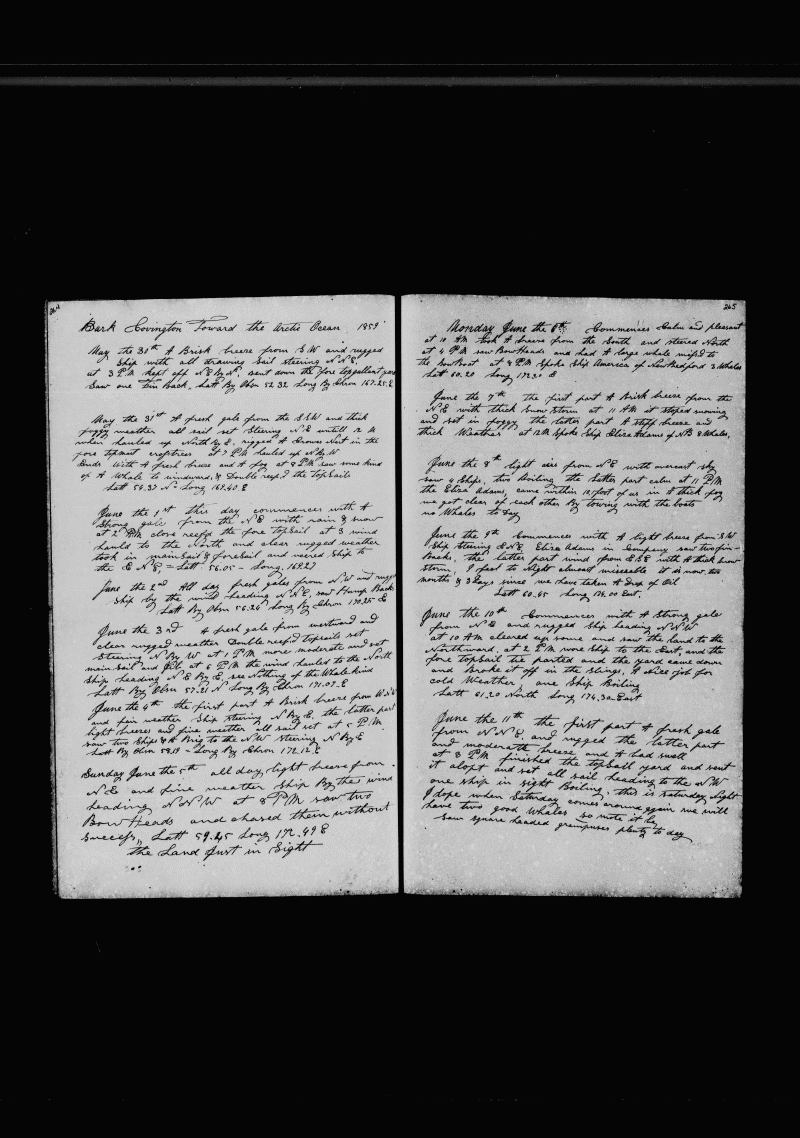 264
Bark Covington Toward the Arctic Ocean 1859
May the 30th A Brisk breeze from S.W and rugged
Ship with all drawing Sail steering N.N.E.
at 3 P.M kept off N.E By N. sent down the fore topgallant yard
Saw one Fin Back. Latt By Obsn 52.32 Long By Chron 167.25.E
May the 31st A fresh gale from the S.S.W and thick
foggy weather all sail set Steering N.E untill 12 M
when hauled up North By E. rigged A Crows Nest in the
fore topmast crosstrees at 7 P.M hauled up N By W
Ends With A fresh breeze and A fog at 8 P.M saw some kind
of A Whale to windward, & Double reef'd the Topsails
Latt 54.37 N Long 167.40 E
June the 1st this day commences with A
Strong gale from the N.E with rain & snow
at 2 P.M close reef'd the fore topsail at 3 wind
hauld to the North and clear rugged weather
took in mainsail & foresail and veered ship to
the E.N.E, = Latt 56.05 - Long. 169.27
June the 2nd All day fresh gales from N.W and rugged
Ship by the wind heading N.N.E, saw Hump Back
Latt By Obsn 56.26 Long By Chron 170.25 E
June the 3rd A fresh gale from westward and
clear rugged weather Double reef'd topsails set
Steering N By W at 1 P.M more moderate and set
main sail and Jib at 6 P.M the wind hauled to the North
Ship heading N.E By E, see Nothing of the Whale kind
Latt By Obsn 57.21 N Long By Chron 171.07.E
June the 4th the first part A Brisk breeze from W.N.W
and fair weather Ship steering N By E, the latter part
light breezes and fine weather all sail set at 5 P.M
saw two Ships & A Brig to the N.W Steering N By E
Latt By Obsn 58.19 - Long By Chron 172.12 E
Sunday June the 5th all day light breeze from
N.E and fine weather Ship By the wind
heading N.N.W at 8 P.M saw two
Bow Heads and chased them without
success, Latt 59.25 Long 172.49 E
the Land Just in Sight
265
Monday June the 6th Commences Calm and pleasant
at 10 AM took A breeze from the South and steered North
at 4 P.M saw Bow Heads and had A large whale miss'd to
the Bow Boat at 8 P.M Spoke Ship America of New Bedford 3 Whales
Latt 60.20 Long 172.20 E
June the 7th the first part A Brisk breeze from the
N.E with thick Snow Storm at 11 AM it stoped snowing
and set in foggy, the latter part A stiff breeze and
thick Weather at 12 M Spoke Ship Eliza Adams of N.B 8 Whales,
June the 8th light airs from N.E with overcast sky
saw 4 Ships, two Boiling the Latter part calm at 11 P.M
the Eliza Adams, came within 12 foot of us in A thick fog
we got clear of each other By towing with the boats
no Whales to Day
June the 9th Commences with A light breeze from S.W
Ship Steering E.N.E Eliza Adams in Company saw two fin-
Backs. the latter part wind from E.S.E with A thick Snow
storm, I feel to Night almost miserable it is now two
months & 3 Days since we have taken A Drop of Oil
Latt 60.45 Long 174.00 East.
June the 10th Commences with A Strong gale
from N.E and rugged Ship heading N.N.W
at 10 AM cleared up some and saw the land to the
Northward. at 2 P.M wore Ship to the East, and the
fore topsail tie parted and the yard came down
and Broke it off in the Slings, A Nice job for
cold Weather, one Ship Boiling
Latt 61.20 North Long 174.30 East
June the 11th the first part A fresh gale
from N.N.E. and rugged the latter part
and moderate breeze and A bad swell
at 8 P.M finished the topsail yard and sent
it aloft and set all sail heading to the N.W
one ship in sight Boiling, this is saturday Night
I dope when Saturday comes around again we will
have two good Whales so mote it be
Saw square headed grampuses plenty to day